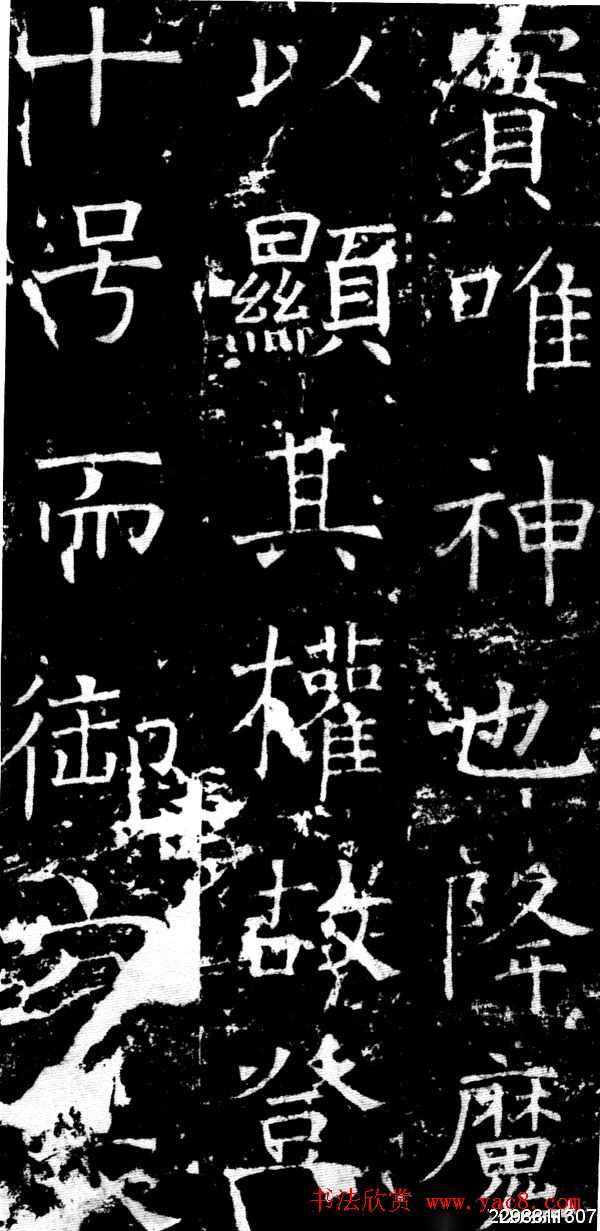 實唯神也降魔
以顯其權故登
十号而御方
书法欣赏 www.yac8.com